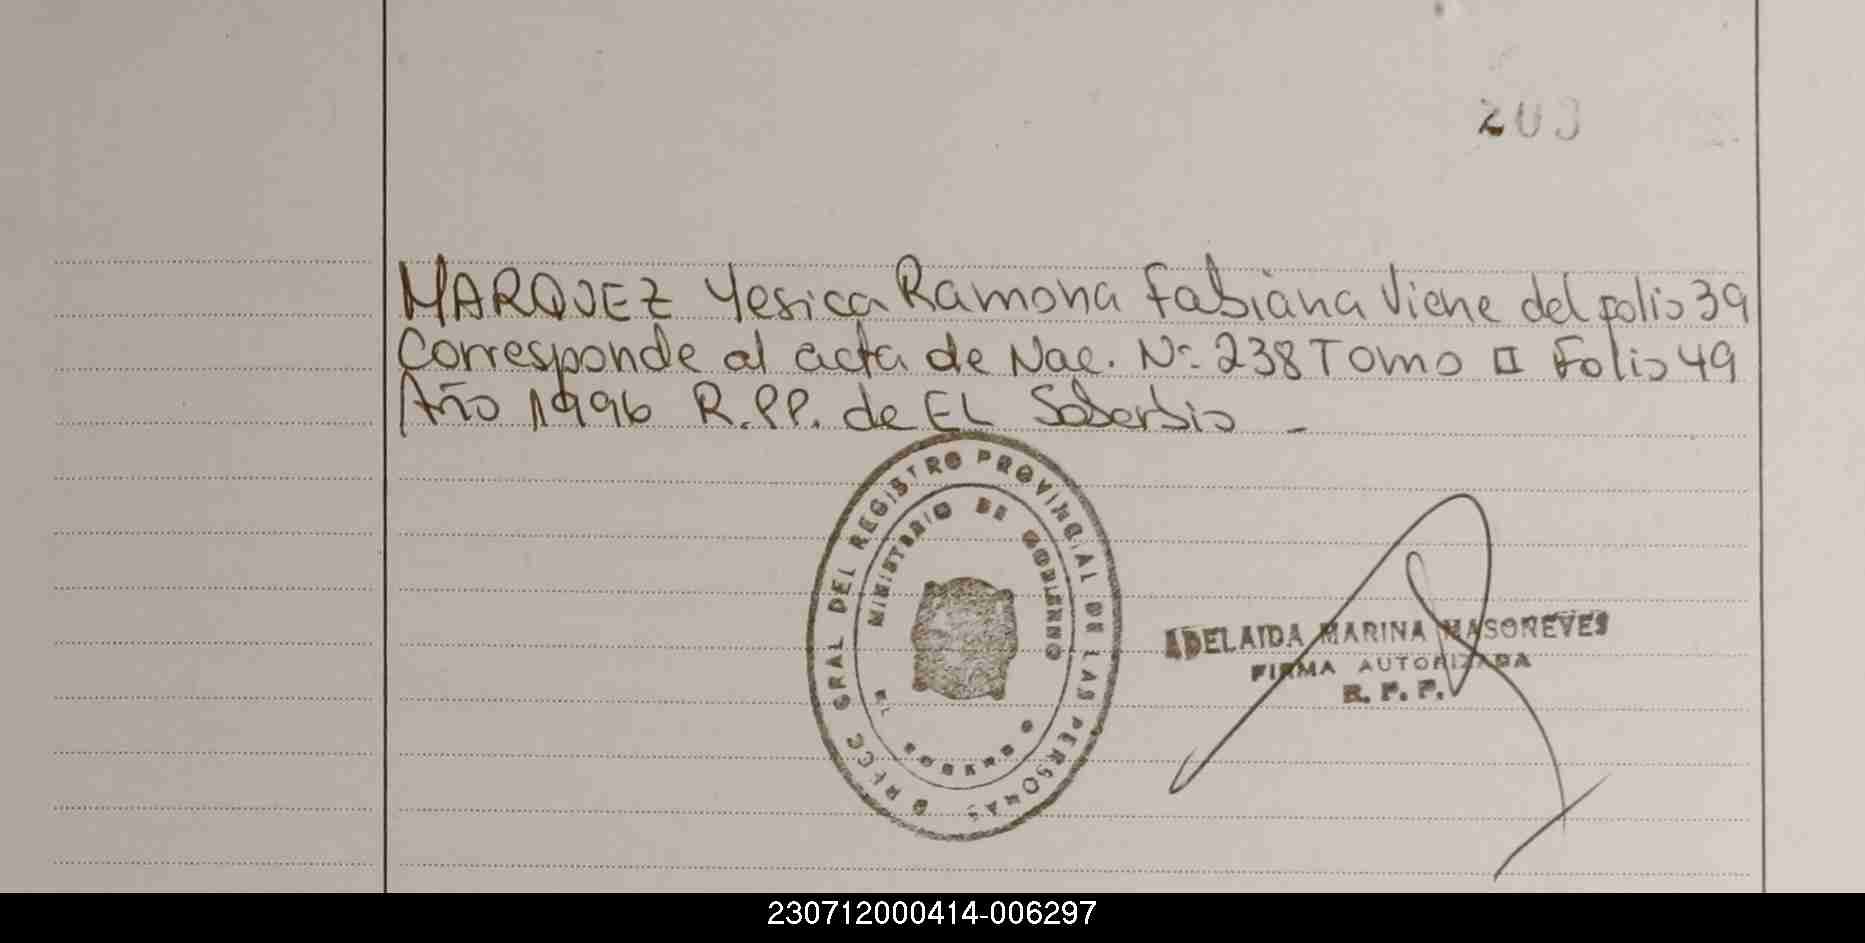 MARQUEZ Yesica Ramona Fabiana Viene del folio 39
Corresponde al acta de Nac. Nº 238 Tomo II Folio 49
Año 1996 R.P.P. de EL Soberbio -
GRAL DEL REGISTRO PROVINCIAL DE LAS PERSONAS
MINISTERIO DE GOBIERNO
ADELAIDA MARINA MASOREVES
FIRMA AUTORIZADA
R. P. P.
230712000414-006297